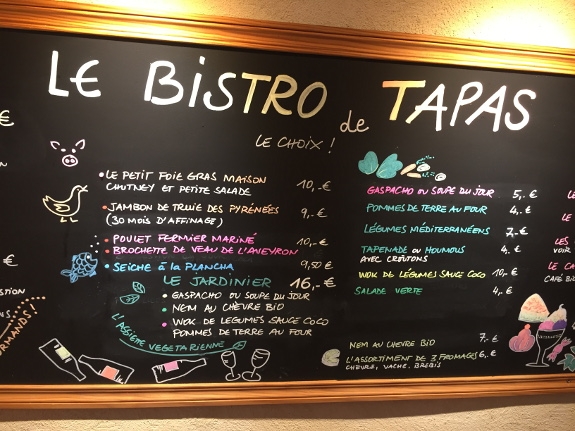 LE BISTRO de TAPAS
LE CHOIX !
• LE PETIT FOIE GRAS MAISON 10,-€
CHUTNEY ET PETITE SALADE
• JAMBON DE TRUIE DES PYRÉNÉES 9,-€
(30 MOIS D'AFFINAGE)
• POULET FERMIER MARINÉ 10,-€
• BROCHETTE DE VEAU DE L'AVEYRON
• SEICHE à LA PLANCHA 9,50€
LE JARDINIER 16,-€
• GASPACHO OU SOUPE DU JOUR
• NEM AU CHÈVRE BIO
• WOK DE LÉGUMES SAUCE COCO
POMMES DE TERRE AU FOUR
L'ASSIETTE VEGETARIENNE
GASPACHO OU SOUPE DU JOUR 5,-€
POMMES DE TERRE AU FOUR 4,-€
LÉGUMES MÉDITERRANÉENS 7,-€
TAPENADE OU HOUMOUS 4,-€
AVEC CROÛTONS
WOK DE LÉGUMES SAUCE COCO 10,-€
SALADE VERTE 4,-€
NEM AU CHEVRE BIO 7,-€
L'ASSORTIMENT DE 3 FROMAGES 6,-€
CHEVRE, VACHE, BREBIS
€
€
LE
LES
VOIR
LE CA
CAFÉ BI